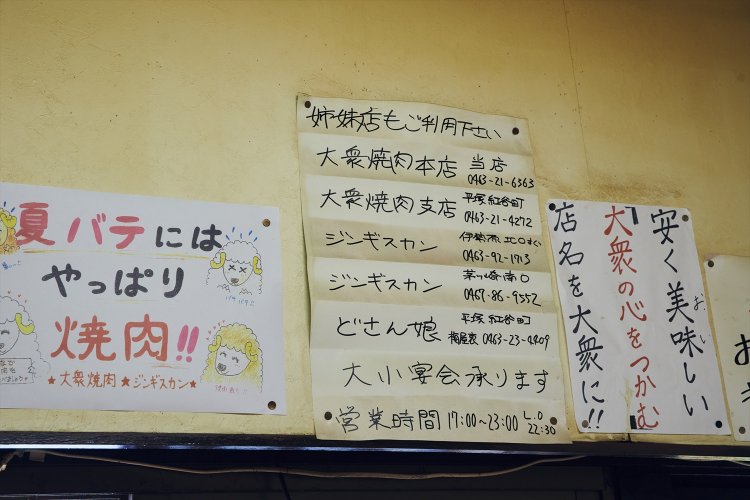 夏バテには
やっぱり
焼肉!!
★大衆焼肉★ジンギスカン★
姉妹店もご利用下さい
大衆焼肉本店 当店 0463-21-6563
大衆焼肉支店 平塚紅谷町 0463-21-4272
ジンギスカン 伊勢原北口すぐ 0463-92-1713
ジンギスカン 茅ヶ崎南口 0467-86-9552
どさん娘 平塚紅谷町 梅屋裏 0463-23-4409
大小宴会承ります
営業時間 17:00~23:00 L.O 22:30
安く美味しい
おい
大衆の心をつかむ
店名を大衆に!!
お